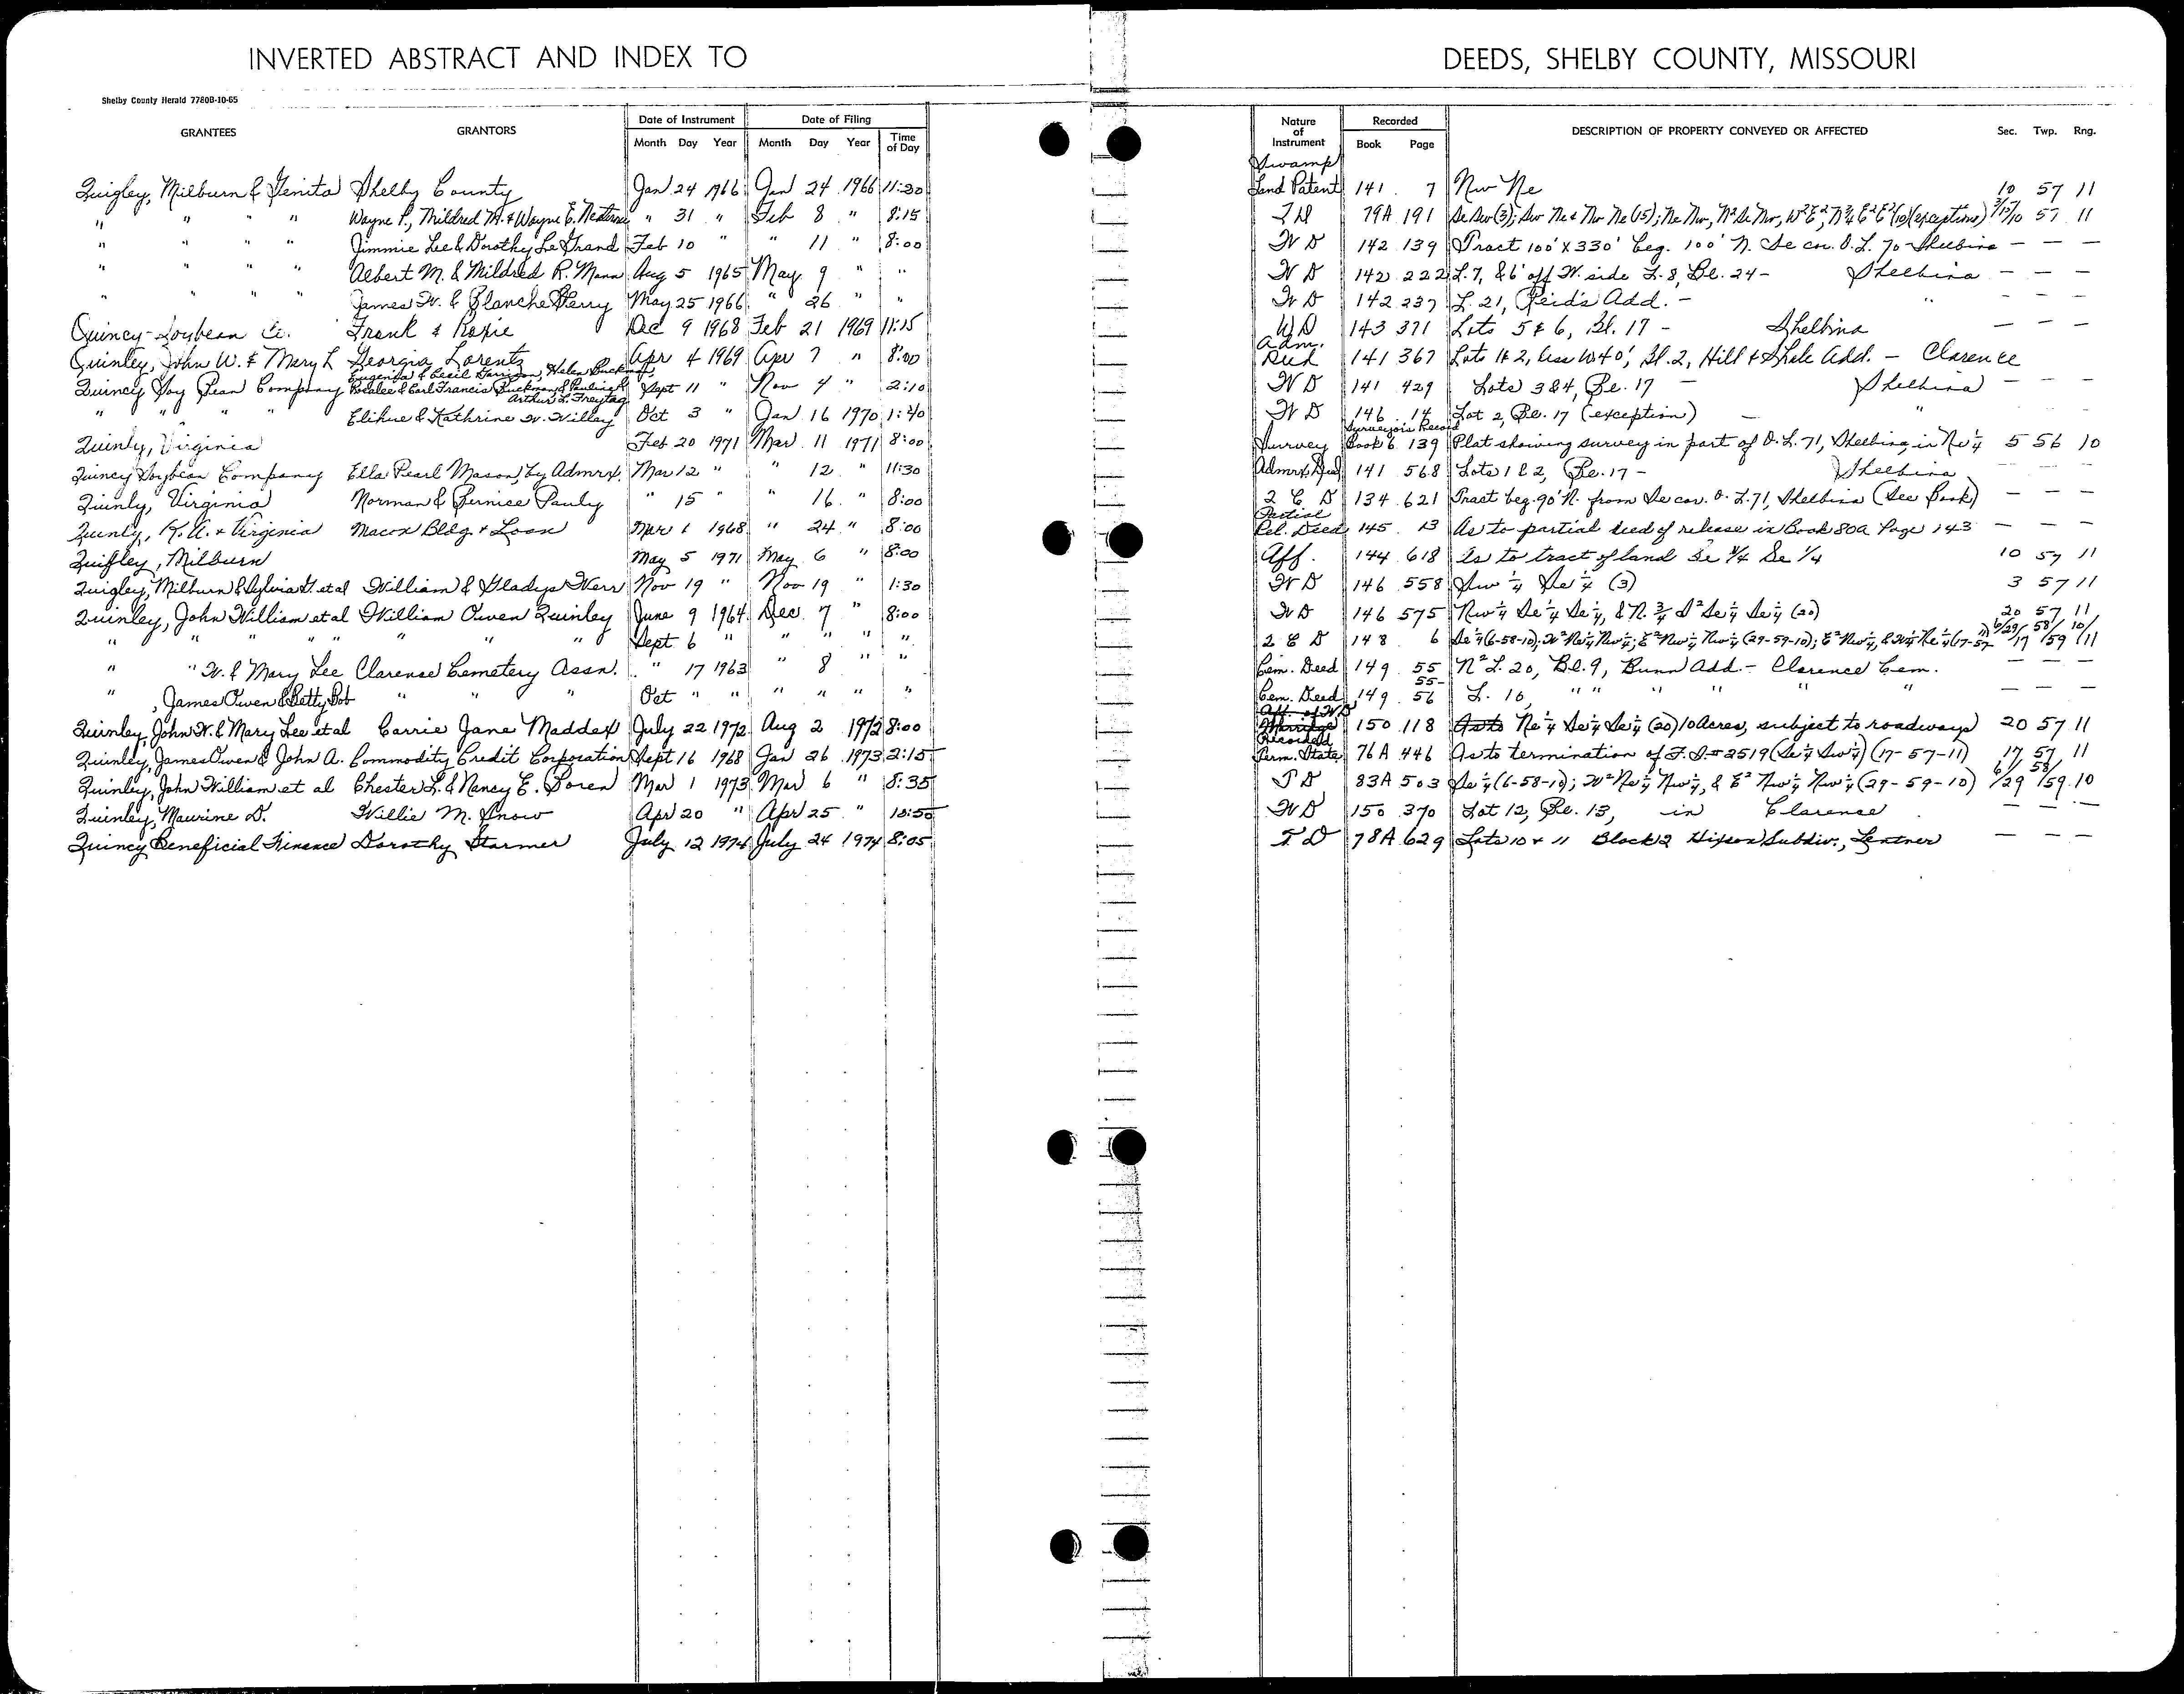 INVERTED ABSTRACT AND INDEX TO DEEDS, SHELBY COUNTY, MISSOURI
Shelby County Herald 7780B-10-65
GRANTEES GRANTORS Date of Instrument Date of Filing Nature of Instrument Recorded DESCRIPTION OF PROPERTY CONVEYED OR AFFECTED Sec. Twp. Rng.
Month Day Year Month Day Year Time of Day Book Page
Quigley, Milburn & Genita Shelby County Jan 24 1966 Jan 24 1966 11:20 Swamp Land Patent 141 7 Nw Ne 10 57 11
" " " " Wayne P., Mildred M. & Wayne E. " 31 " Feb 8 " 8:15 79A 191 Se Sw (3); Sw Ne & Nw Ne (15); Ne Nw, N² Se Nw, W² E², N¾ E² E² (10) (exceptions) 3/15/10 57 11
" " " " Jimmie Lee & Dorothy LeGrand Feb 10 " " 11 " 8:00 W D 142 139 Tract 100' X 330' beg. 100' N. Se cor. O.L. 70 - Shelbina — — —
" " " " Albert M. & Mildred R. Mann Aug 5 1965 May 9 " " W D 142 222 L. 7, & 6' off W. side L. 8, Bl. 24 - Shelbina — — —
" " " " James W. & Blanche Perry May 25 1966 " 26 " " W D 142 237 L. 21, Reid's Add. - " — — —
Quincy-Soybean Co. Frank & Roxie Dec 9 1968 Feb 21 1969 11:15 WD 143 371 Lots 5 & 6, Bl. 17 - Shelbina — — —
Quinley, John W. & Mary L Georgia Lorentz Apr 4 1969 Apr 7 " 8:00 Adm. Deed 141 367 Lots 1 & 2, less W40', Bl. 2, Hill & Shale Add. - Clarence
Eugenia & Cecil Garrison, Helen Buckman,
Quincy Soy Bean Company Rosalee & Earl Francis Buckman & Pauline & Sept 11 " Nov 4 " 2:10 W D 141 429 Lots 3 & 4, Bl. 17 - Shelbina — — —
Arthur L. Freytag
" " " " Elihue & Kathrine W. Willey Oct 3 " Jan 16 1970 1:40 W D 146 14 Lot 2, Bl. 17 (exception) — " — — —
Quinly, Virginia Feb 20 1971 Mar 11 1971 8:00 Survey Surveyor's Record Book 6 139 Plat showing survey in part of O.L. 71, Shelbina, in Nw ¼ 5 56 10
Quincy Soybean Company Ella Pearl Mason, by Admrx. Mar 12 " " 12 " 11:30 Admrx Deed 141 568 Lots 1 & 2, Bl. 17 - Shelbina — — —
Quinly, Virginia Norman & Bernice Pauly " 15 " " 16 " 8:00 2 C D 134 621 Tract beg. 90' N. from Se cor. O.L. 71, Shelbina (See Book) — — —
Quinly, K. A. & Virginia Macon Bldg. & Loan Mar 1 1968 " 24 " 8:00 Partial Rel. Deed 145 13 As to partial deed of release in Book 80A Page 143 — — —
Quigley, Milburn May 5 1971 May 6 " 8:00 Aff. 144 618 As to tract of land Se ¾ Se ¼ 10 57 11
Quigley, Milburn & Sylvia G. et al William & Gladys Kerr Nov 19 " Nov 19 " 1:30 W D 146 558 Sw ¼ Se ¼ (3) 3 57 11
Quinley, John William et al William Owen Quinley June 9 1964 Dec 7 " 8:00 W D 146 575 Nw ¼ Se ¼ Se ¼, & N. ¾ S² Se ¼ Se ¼ (20) 20 57 11
" " " " " " " " Sept 6 " " " " " 2 C D 148 6 Se ¼ (6-58-10); W² Ne ¼ Nw ¼; E² Nw ¼ Nw ¼ (29-59-10); E² Nw ¼, & Ne ¼ (17-57-11) 6/29/17 58/59 10/11
" " W. & Mary Lee Clarence Cemetery Assn. " 17 1963 " 8 " " Cem. Deed 149 55 N² L. 20, Bl. 9, Bunn Add. - Clarence Cem. — — —
" , James Owen & Betty Bob " " " Oct " " " " " " Cem. Deed 149 55-56 L. 16, " " " " " " — — —
Quinley, John W. & Mary Lee et al Carrie Jane Maddex July 22 1972 Aug 2 1972 8:00 W D 150 118 As to Ne ¼ Se ¼ Se ¼ (20) 10 Acres, subject to roadways 20 57 11
Quinley, James Owen & John A. Commodity Credit Corporation Sept 16 1968 Jan 26 1973 2:15 Term. State 76A 446 As to termination of F.S.# 2519 (Se ¼ Sw ¼) (17-57-11) 17 57 11
Quinley, John William et al Chester L. & Nancy E. Doren Mar 1 1973 Mar 6 " 8:35 T D 83A 503 Se ¼ (6-58-10); W² Ne ¼ Nw ¼, & E² Nw ¼ Nw ¼ (29-59-10) 6/29 58/59 10
Quinley, Maurine D. Willie M. Snow Apr 20 " Apr 25 " 10:50 W D 150 370 Lot 12, Bl. 13, in Clarence — — —
Quincy Beneficial Finance Dorothy Starmer July 12 1974 July 24 1974 8:05 T D 78A 629 Lots 10 & 11 Block 2 Hixson Subdiv., Lentner — — —